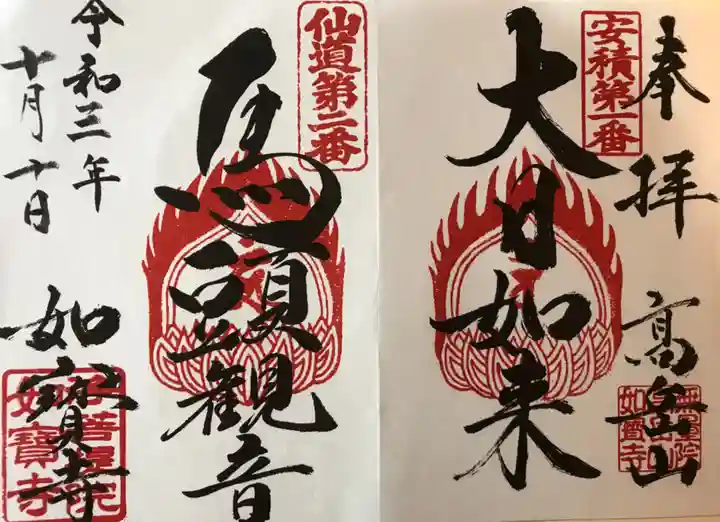 奉拝
安積第一番
大日如来
高岳山
仙道第二番
馬頭観音
令和三年
十月十日
如寳寺
如寳寺